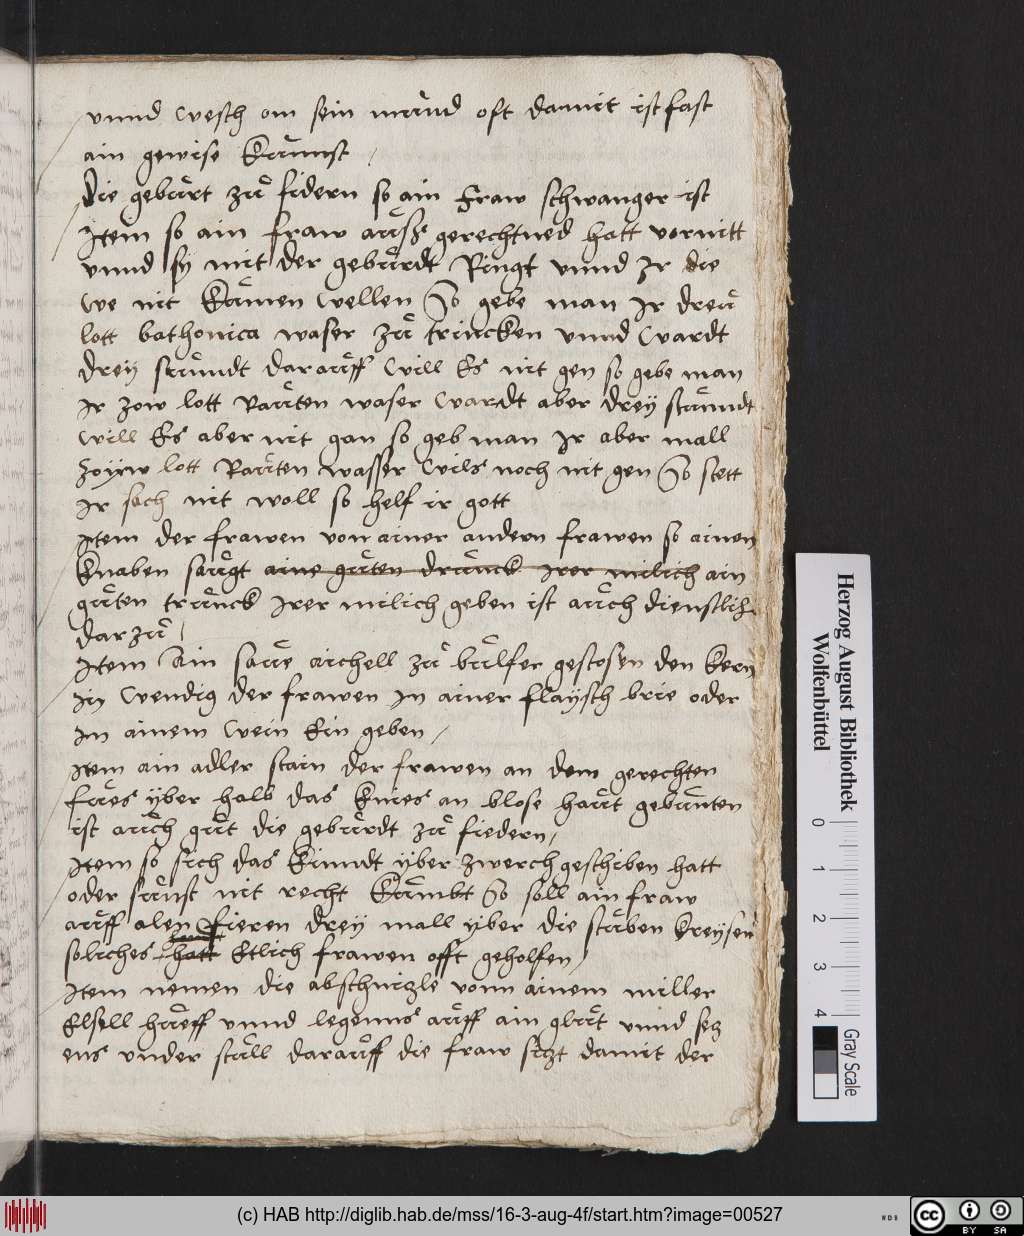 vnnd wesch om sein mund oft damit ist fast
ain gewise kunst /
die geburt zu fidern so ain fraw schwanger ist
Item so ain fraw gerechtned hatt vornitt
vnnd sy mit der geburdt Ringt vnnd Ir die
we nit kumen wellen So gebe man Ir dreu
lott bathonica waser zu trincken vnnd wardt
drey stundt darauff will Es nit gen so gebe man
Ir zow lott Rauten waser wardt aber drey stundt
will Es aber nit gan so geb man Ir aber mall
zoyw lott Rauten wasser wils noch nit gen So stett
Ir sach nit woll so helf ir gott
Item der frawen von ainer andern frawen so ainen
knaben saugt aine guten drunck Irer milich ain
guten trunck Irer milich geben ist auch dienstlich
dar zu /
Item Ain saure aichell zu bulfer gestosen den kern
In wendig der frawen In ainer flaysch brie oder
Im ainem wein Ein geben /
Item ain adler stain der frawen an dem gerechten
fues yber halb das knies an blose haut gebunten
ist auch gut die geburdt zu fiedern /
Item so sich das kinndt yber zwerch geschiben hatt
oder sunst nit recht kumbt So soll ain fraw
auff alen fieren drey mall yber die stuben kreysen
soliches hatt Etlich frawen offt geholfen /
Item nemen die abschnizle vonn ainem miller
Elsell hueff vnnd legenns auff ain gluet vnnd sez
ens vnder stull darauff die fraw sizt damit der
Herzog August Bibliothek
Wolfenbüttel
0 1 2 3 4
Gray Scale
(c) HAB http://diglib.hab.de/mss/16-3-aug-4f/start.htm?image=00527
WDB
cc BY SA